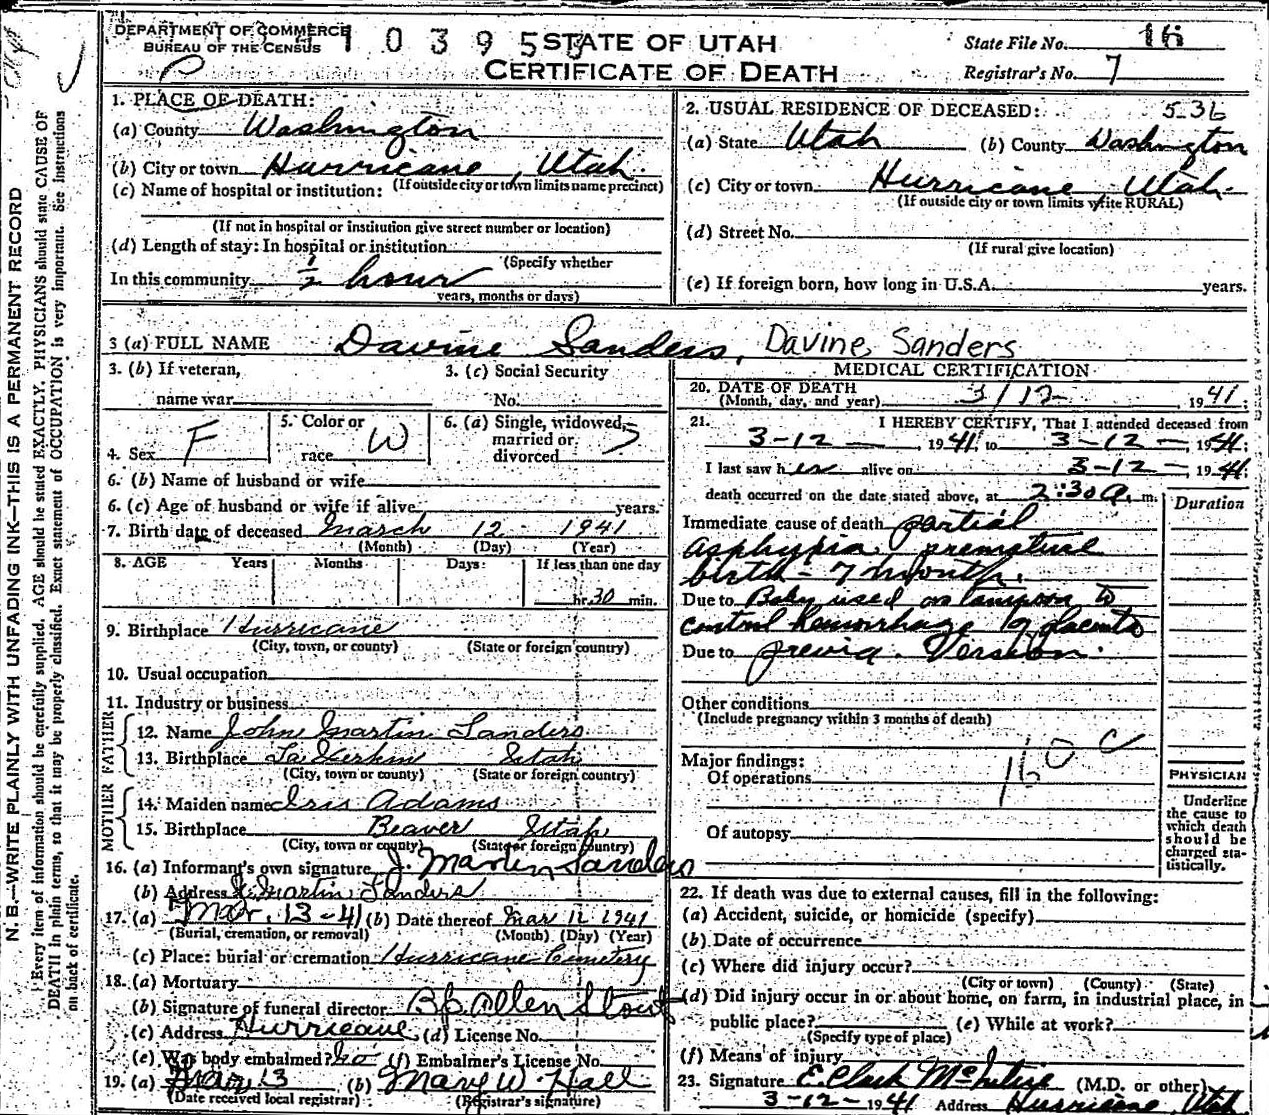 DEPARTMENT OF COMMERCE
BUREAU OF THE CENSUS
1 0 3 9 5
STATE OF UTAH
CERTIFICATE OF DEATH
State File No. 16
Registrar's No. 7
N. B.—WRITE PLAINLY WITH UNFADING INK—THIS IS A PERMANENT RECORD
Every item of information should be carefully supplied. AGE should be stated EXACTLY. PHYSICIANS should state CAUSE OF
DEATH in plain terms, so that it may be properly classified. Exact statement of OCCUPATION is very important. See Instructions
on back of certificate.
1. PLACE OF DEATH:
(a) County Washington
(b) City or town Hurricane, Utah.
(If outside city or town limits name precinct)
(c) Name of hospital or institution:
(If not in hospital or institution give street number or location)
(d) Length of stay: In hospital or institution
(Specify whether
In this community 1/2 hour
years, months or days)
2. USUAL RESIDENCE OF DECEASED: 536
(a) State Utah (b) County Washington
(c) City or town Hurricane, Utah.
(If outside city or town limits write RURAL)
(d) Street No.
(If rural give location)
(e) If foreign born, how long in U.S.A. years.
3 (a) FULL NAME Davine Sanders, Davine Sanders
3. (b) If veteran,
name war
3. (c) Social Security
No.
4. Sex F
5. Color or
race W
6. (a) Single, widowed,
married or
divorced S
6. (b) Name of husband or wife
6. (c) Age of husband or wife if alive years.
7. Birth date of deceased March 12 1941
(Month) (Day) (Year)
8. AGE Years Months Days If less than one day
hr. 30 min.
9. Birthplace Hurricane
(City, town, or county) (State or foreign country)
10. Usual occupation
11. Industry or business
FATHER
12. Name John Martin Sanders
13. Birthplace La Verkin Utah
(City, town or county) (State or foreign country)
MOTHER
14. Maiden name Iris Adams
15. Birthplace Beaver Utah
(City, town or county) (State or foreign country)
16. (a) Informant's own signature J. Martin Sanders
(b) Address J. Martin Sanders
17. (a) Mar. 13-41 (b) Date thereof Mar 12 1941
(Burial, cremation, or removal) (Month) (Day) (Year)
(c) Place: burial or cremation Hurricane Cemetery
18. (a) Mortuary
(b) Signature of funeral director Bp. Allen Stout
(c) Address Hurricane (d) License No.
(e) Was body embalmed? no (f) Embalmer's License No.
19. (a) Mar 13 (b) Mary W. Hall
(Date received local registrar) (Registrar's signature)
MEDICAL CERTIFICATION
20. DATE OF DEATH
(Month, day, and year) 3/12 1941.
21. I HEREBY CERTIFY, That I attended deceased from
3-12- 1941, to 3-12- 1941.
I last saw her alive on 3-12- 1941.
death occurred on the date stated above, at 2:30 A. m.
Duration
Immediate cause of death partial
asphyxia premature
birth - 7 month.
Due to Baby used as tampon to
control hemorrhage of placenta
Due to previa. Version.
Other conditions
(Include pregnancy within 3 months of death)
160 c
Major findings:
Of operations
Of autopsy
PHYSICIAN
Underline
the cause to
which death
should be
charged sta-
tistically.
22. If death was due to external causes, fill in the following:
(a) Accident, suicide, or homicide (specify)
(b) Date of occurrence
(c) Where did injury occur?
(City or town) (County) (State)
(d) Did injury occur in or about home, on farm, in industrial place, in
public place? (e) While at work?
(Specify type of place)
(f) Means of injury
23. Signature E. Clark McIntire (M.D. or other)
3-12-1941 Address Hurricane, Utah